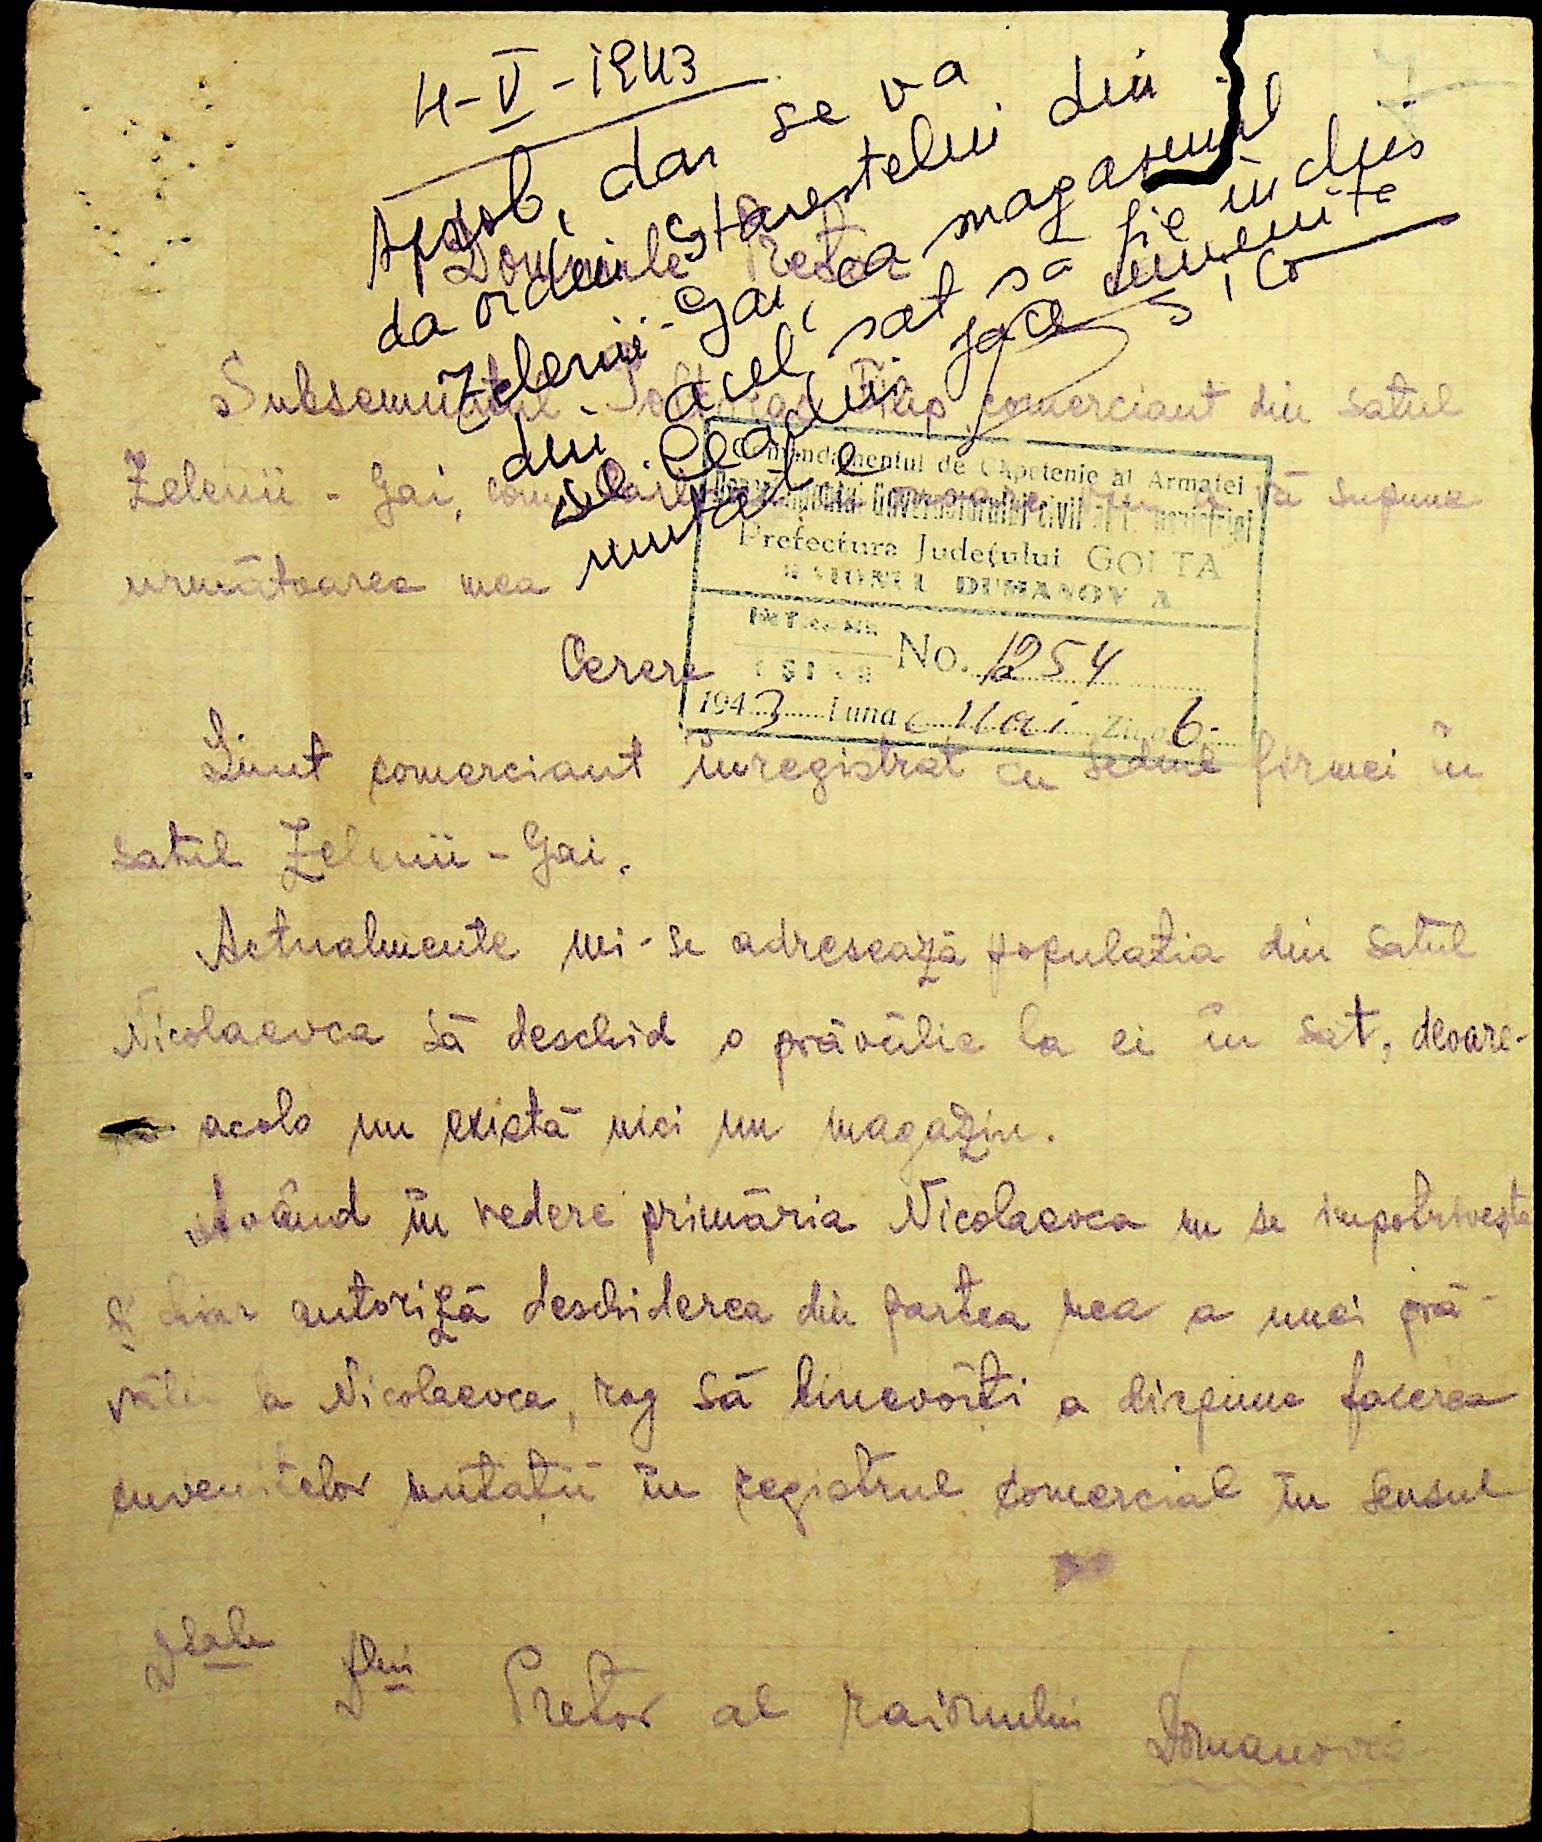 4-V-1943
Aprob, dar se va
da ordin starestelui din
Zelenii-Gai, ca magazinul
din acel sat să fie închis
se face
mutație
Domnule Pretor
Subsemnatul Filip, comerciant din satul
Zelenii-Gai, vă supune
următoarea mea
Cerere
Comandamentul de Căpetenie al Armatei
Guvernatorului Civil al Transnistriei
Prefectura Județului GOLTA
RAIONUL DUMANOVCA
INTRARE
IEȘIRE
No. 1254
1943 Luna Mai Ziua 6
Sunt comerciant înregistrat cu sediul firmei în
satul Zelenii-Gai.
Actualmente mi-se adresează populația din satul
Nicolaevca să deschid o prăvălie la ei în sat, deoare-
acolo nu există nici un magazin.
Având în vedere primăria Nicolaevca nu se împotrivește
și chiar autoriză deschiderea din partea mea a unei pră-
vălii la Nicolaevca, rog să binevoiți a dispune facerea
cuvenitelor mutații în registrul comercial în sensul
Dsale
Dlui Pretor al raionului Domanovca